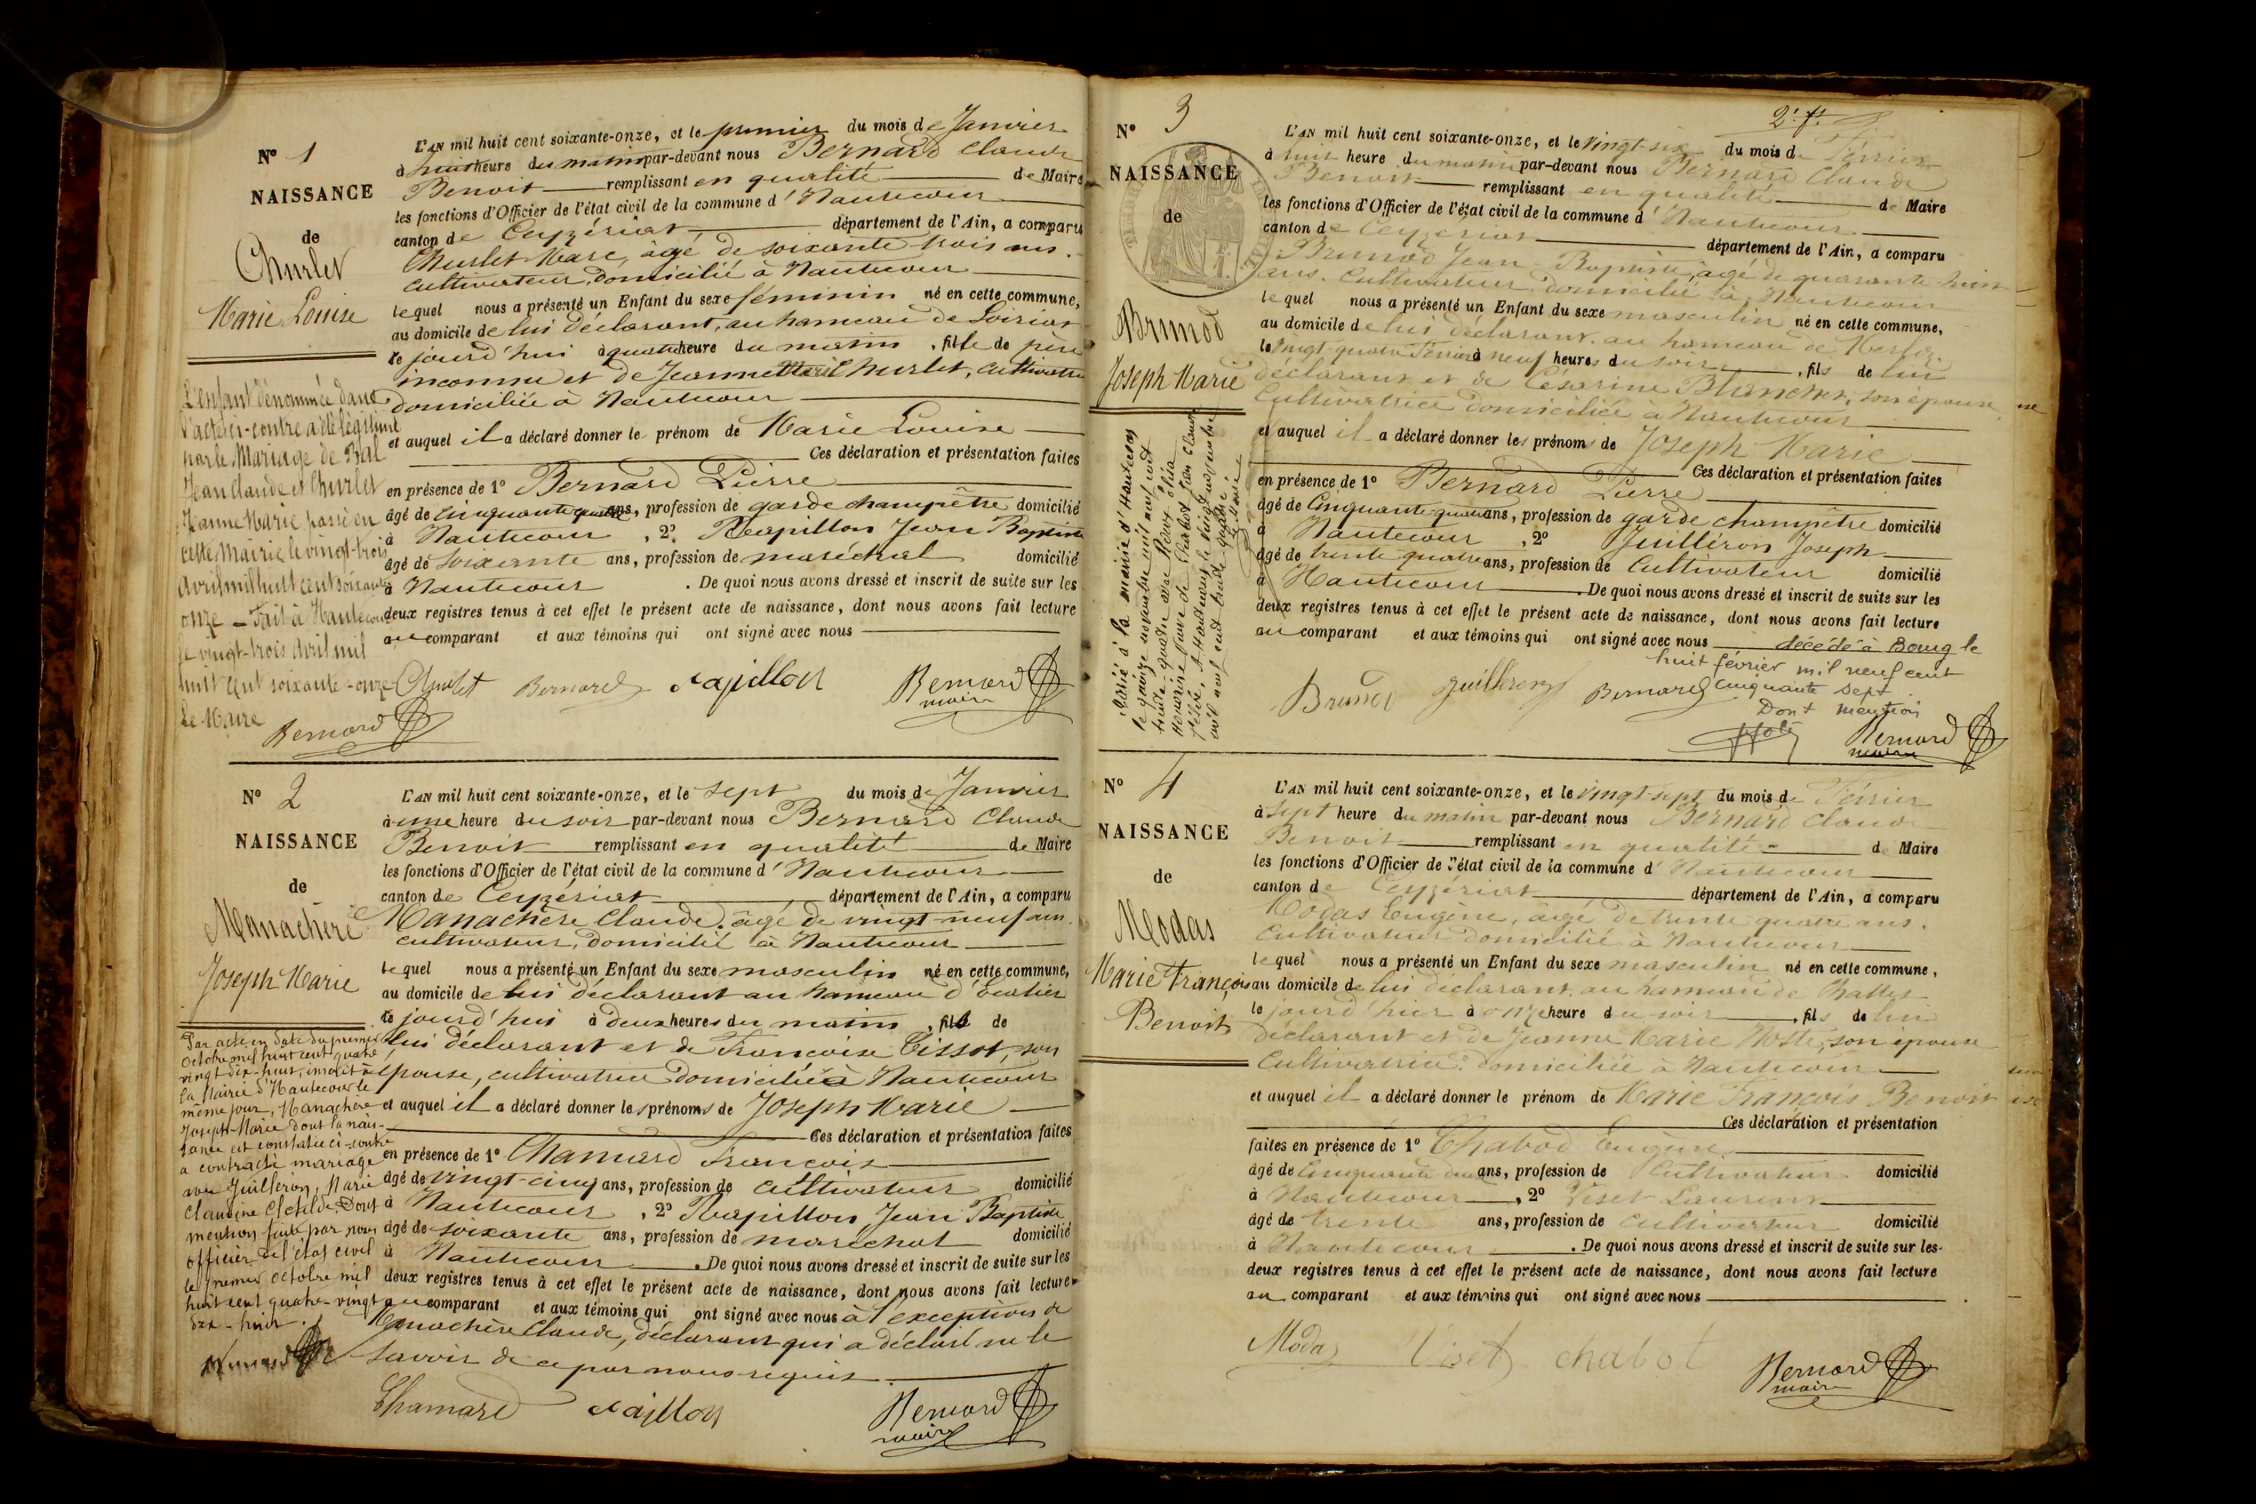 N° 1
NAISSANCE
de
Churlet
Marie Louise
L'enfant dénommée dans
l'acte ci-contre a été légitimé
par le Mariage de Bal
Jean Claude et Churlet
Jeanne Marie passé en
cette Mairie le vingt-trois
avril mil huit cent soixante
onze - Fait à Hautecour
le vingt-trois avril mil
huit cent soixante-onze
Le Maire
Bernard
L'AN mil huit cent soixante-onze, et le premier du mois de Janvier
à huit heure du matin par-devant nous Bernard Claude
Benoit remplissant en qualité de Maire
les fonctions d'Officier de l'état civil de la commune d'Hautecour
canton de Ceyzériat département de l'Ain, a comparu
Churlet Marc, âgé de soixante trois ans.
cultivateur, domicilié à Hautecour
lequel nous a présenté un Enfant du sexe féminin né en cette commune,
au domicile de lui déclarant, au hameau de
le jourd'hui à quatre heure du matin, fille de père
inconnu et de Jeanne Marie Churlet, cultivatrice
domiciliée à Hautecour
et auquel il a déclaré donner le prénom de Marie Louise
Ces déclaration et présentation faites
en présence de 1° Bernard Pierre
âgé de cinquante quatre ans, profession de garde champêtre domicilié
à Hautecour, 2° Rapillon Jean Baptiste
âgé de soixante ans, profession de maréchal domicilié
à Hautecour. De quoi nous avons dressé et inscrit de suite sur les
deux registres tenus à cet effet le présent acte de naissance, dont nous avons fait lecture
au comparant et aux témoins qui ont signé avec nous
Churlet Bernard Rapillon Bernard
maire
N° 2
NAISSANCE
de
Manachère
Joseph Marie
Par acte en date du premier
octobre mil huit cent quatre
vingt dix-huit, inscrit à
la Mairie d'Hautecour le
même jour, Manachère
Joseph-Marie dont la nais-
sance est constatée ci-contre
a contracté mariage
avec Juilleron, Marie
Claudine Clotilde. Dont
mention faite par nous
officier de l'état civil
le premier octobre mil
huit cent quatre-vingt
dix-huit.
Bernard
L'AN mil huit cent soixante-onze, et le sept du mois de Janvier
à une heure du soir par-devant nous Bernard Claude
Benoit remplissant en qualité de Maire
les fonctions d'Officier de l'état civil de la commune d'Hautecour
canton de Ceyzériat département de l'Ain, a comparu
Manachère Claude, âgé de vingt-neuf ans.
cultivateur, domicilié à Hautecour
lequel nous a présenté un Enfant du sexe masculin né en cette commune,
au domicile de lui déclarant au hameau d'
le jourd'hui à deux heures du matin, fils de
lui déclarant et de Françoise Tissot, son
épouse, cultivatrice domiciliée à Hautecour
et auquel il a déclaré donner les prénoms de Joseph Marie
Ces déclaration et présentation faites
en présence de 1° Chamard François
âgé de vingt-cinq ans, profession de cultivateur domicilié
à Hautecour, 2° Rapillon Jean Baptiste
âgé de soixante ans, profession de maréchal domicilié
à Hautecour. De quoi nous avons dressé et inscrit de suite sur les
deux registres tenus à cet effet le présent acte de naissance, dont nous avons fait lecture
au comparant et aux témoins qui ont signé avec nous à l'exception de
Manachère Claude, déclarant qui a déclaré ne le
savoir de ce par nous requis.
Chamard Rapillon Bernard
maire
2e ft
N° 3
NAISSANCE
de
Brunod
Joseph Marie
L'AN mil huit cent soixante-onze, et le vingt-six du mois de Février
à huit heure du matin par-devant nous Bernard Claude
Benoit remplissant en qualité de Maire
les fonctions d'Officier de l'état civil de la commune d'Hautecour
canton de Ceyzériat département de l'Ain, a comparu
Brunod Jean-Baptiste, âgé de quarante huit
ans. cultivateur domicilié à Hautecour
lequel nous a présenté un Enfant du sexe masculin né en cette commune,
au domicile de lui déclarant, au hameau de
le vingt-quatre Février à neuf heures du soir, fils de lui
déclarant et de Césarine Blanchet, son épouse
cultivatrice domiciliée à Hautecour
et auquel il a déclaré donner les prénoms de Joseph Marie
Ces déclaration et présentation faites
en présence de 1° Bernard Pierre
âgé de Cinquante-quatre ans, profession de garde champêtre domicilié
à Hautecour, 2° Juilléron Joseph
âgé de trente quatre ans, profession de cultivateur domicilié
à Hautecour. De quoi nous avons dressé et inscrit de suite sur les
deux registres tenus à cet effet le présent acte de naissance, dont nous avons fait lecture
au comparant et aux témoins qui ont signé avec nous
décédé à Bourg le
huit février mil neuf cent
cinquante sept
Dont mention
Brunod Juilleron Bernard Bernard
maire
N° 4
NAISSANCE
de
Modas
Marie François
Benoit
L'AN mil huit cent soixante-onze, et le vingt-sept du mois de Février
à sept heure du matin par-devant nous Bernard Claude
Benoit remplissant en qualité de Maire
les fonctions d'Officier de l'état civil de la commune d'Hautecour
canton de Ceyzériat département de l'Ain, a comparu
Modas Eugène, âgé de trente quatre ans.
cultivateur domicilié à Hautecour
lequel nous a présenté un Enfant du sexe masculin né en cette commune,
au domicile de lui déclarant au hameau de
le jourd'hier à onze heure du soir, fils de lui
déclarant et de Jeanne Marie, son épouse
cultivatrice domiciliée à Hautecour
et auquel il a déclaré donner le prénom de Marie François Benoit
Ces déclaration et présentation
faites en présence de 1° Chabod Eugène
âgé de cinquante ans, profession de cultivateur domicilié
à Hautecour, 2° Viset Laurent
âgé de trente ans, profession de cultivateur domicilié
à Hautecour. De quoi nous avons dressé et inscrit de suite sur les
deux registres tenus à cet effet le présent acte de naissance, dont nous avons fait lecture
au comparant et aux témoins qui ont signé avec nous
Modas Viset chabot Bernard
maire